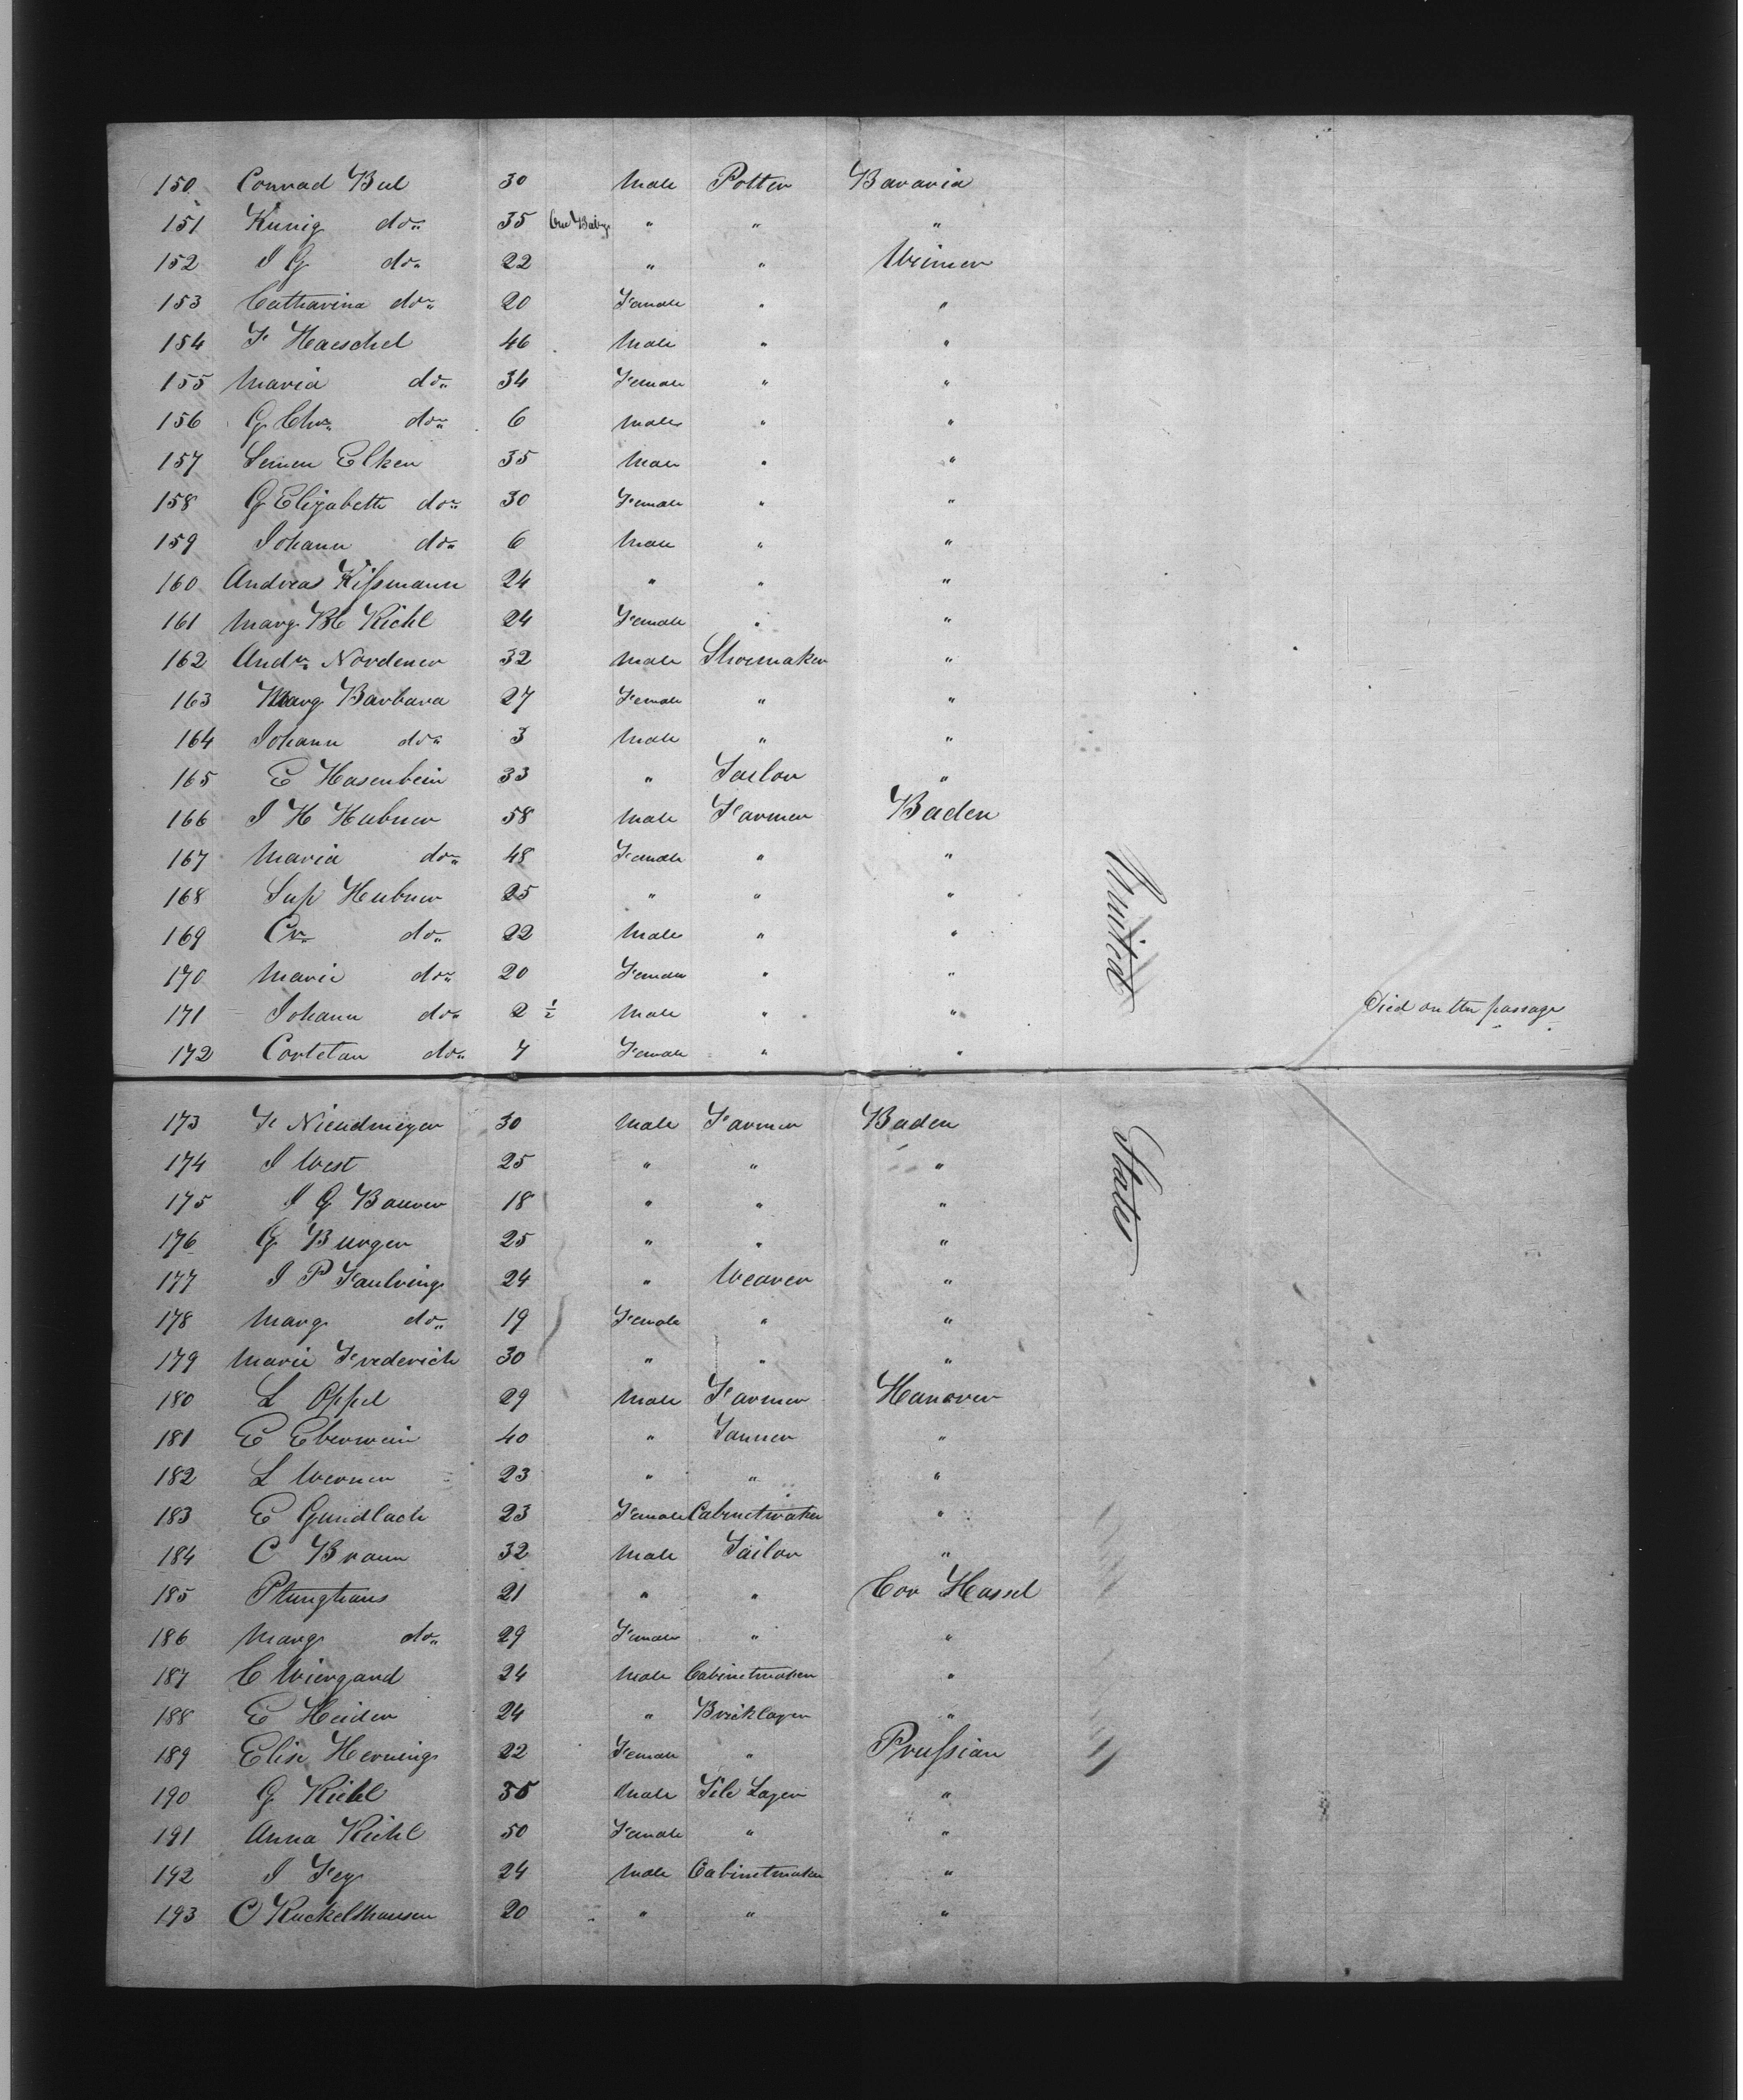 150 Conrad Beil 30 Male Potter Bavaria
151 Kunig do 35 One Baby " " "
152 I G do 22 " " Weimer
153 Catharina do 20 Female " "
154 F Haeschel 46 Male " "
155 Maria do 34 Female " "
156 G Chr do 6 Male " "
157 Semen Elken 35 Male " "
158 G Elizabeth do 30 Female " "
159 Johann do 6 Male " "
160 Andreas Kissmann 24 " " "
161 Marg Kiehl 24 Female " "
162 Andr Nordener 32 Male Shoemaker "
163 Marg Barbara 27 Female " "
164 Johann do 3 Male " "
165 E Hasenbein 33 " Tailor "
166 I H Hubner 58 Male Farmer Baden
167 Maria do 48 Female " "
168 Hubner 25 " " "
169 Cr do 22 Male " "
170 Marie do 20 Female " "
171 Johann do 2 1/2 Male " " Died on the passage
172 do 7 Female " "
United
173 F Niendmeyer 30 Male Farmer Baden
174 I West 25 " " "
175 I G Bauer 18 " " "
176 G Burger 25 " " "
177 I P Faulring 24 " Weaver "
178 Marg do 19 Female " "
179 Marie Frederich 30 " " "
180 L Oppel 29 Male Farmer Hanover
181 E Eberwein 40 " Tanner "
182 L Werner 23 " " "
183 E Gundlach 23 Female Cabinetmaker "
184 C Braun 32 Male Tailor "
185 21 " " Cor Hassel
186 Marg do 29 Female " "
187 C Wiergand 24 Male Cabinetmaker "
188 E Heider 24 " Bricklayer "
189 Elise Hernning 22 Female " Prussian
190 G Kiehl 35 Male Tile Layer "
191 Anna Kiehl 50 Female " "
192 I Fey 24 Male Cabinetmaker "
193 C Ruckelshausen 20 " " "
States